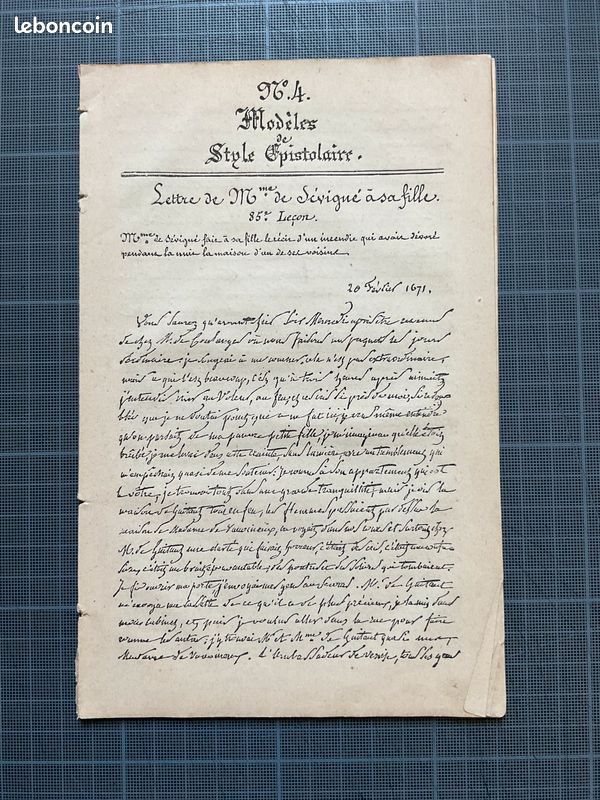 leboncoin
Nº. 4.
Modèles
de
Style Epistolaire.
Lettre de Mme de Sévigné à sa fille.
85e Leçon.
Mme de Sévigné fait à sa fille le récit d'un incendie qui avait dévoré
pendant la nuit la maison d'un de ses voisins.
20 Février 1671.
Vous saurez qu'avant hier soir Mercredi après être revenue
de chez M. de Coulanges où nous faisons nos paquets les jours
d'ordinaire, je songeai à me coucher, cela n'est pas extraordinaire,
mais ce qui l'est beaucoup, c'est qu'à trois heures après minuit
j'entendis crier au voleur, au feu, et ces cris si près de moi, si redou-
blés que je ne doutai point que ce ne fut ici, je crus même entendre
qu'on parlait de ma pauvre petite fille, je m'imaginai qu'elle était
brûlée, je me levai dans cette crainte sans lumière, avec un tremblement qui
m'empêchait quasi de me soutenir. Je courus à son appartement qui est
le vôtre, je trouvai tout dans une grande tranquillité, mais je vis la
maison de Guitaut tout en feu, les flammes passaient par dessus la
maison de Madame de Vauvineux, on voyait dans nos cours et surtout chez
M. de Guitaut une clarté qui faisait horreur, c'étaient des cris, c'était une confu-
sion, c'était un bruit épouvantable des poutres et des solives qui tombaient.
Je fis ouvrir ma porte, j'envoyai mes gens au secours. M. de Guitaut
m'envoya une cassette de ce qu'il a de plus précieux, je la mis dans
mon cabinet, et puis je voulus aller dans la rue pour faire
comme les autres, j'y trouvai M. et Mme de Guitaut quasi nus,
Madame de Vauvineux, l'Ambassadeur de Venise, tous ses gens